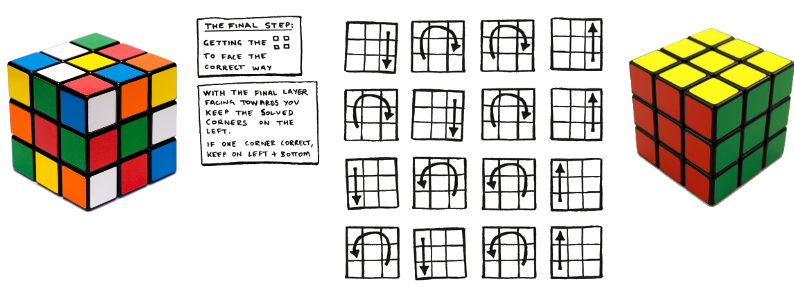 THE FINAL STEP:
GETTING THE
TO FACE THE
CORRECT WAY
WITH THE FINAL LAYER
FACING TOWARDS YOU
KEEP THE SOLVED
CORNERS ON THE
LEFT.
IF ONE CORNER CORRECT,
KEEP ON LEFT + BOTTOM